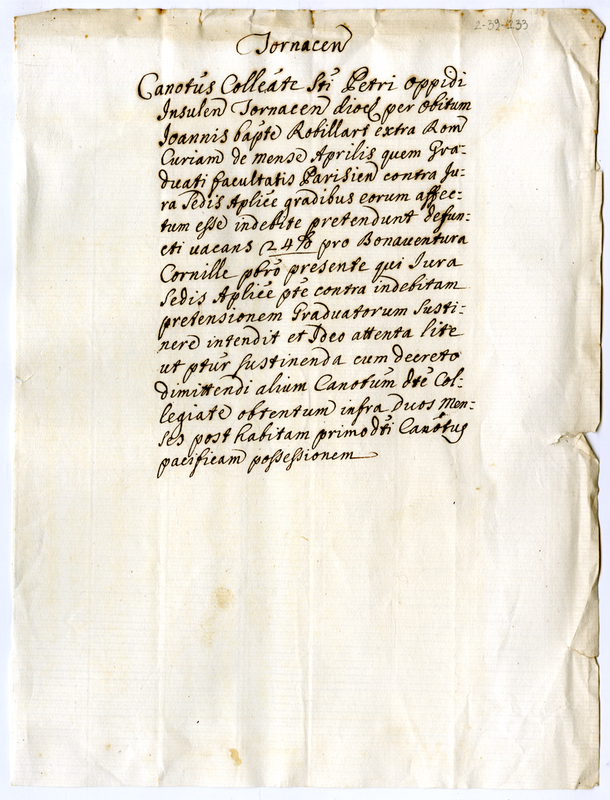 2-39-233
Tornacen
Canotûs Colleáte Sti Petri oppidi
Insulen Tornacen dioc per obitum
Joannis bapte Robillart extra Rom
Curiam de mense Aprilis quem Gra-
duati facultatis Parisien contra Ju-
ra Sedis Aplice gradibus eorum affec-
tum esse indebite pretendunt defun-
cti vacans 24 pro Bonaventura
Cornille pbro presente qui Jura
Sedis Aplice pte contra indebitam
pretensionem Graduatorum susti-
nere intendit et Ideo attenta lite
ut ptur sustinenda cum decreto
dimittendi alium Canotum dte Col-
legiate obtentum infra Duos Men-
ses post habitam primodti Canotus
pacificam possessionem